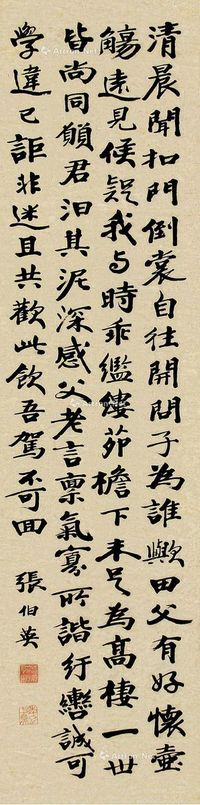 清晨聞扣門倒裳自往開問子為誰歟田父有好懷壺
觴遠見候疑我与時乖繿縷茆檐下未足為高棲一世
皆尚同願君汩其泥深感父老言稟氣寡所諧紆轡誠可
學違己詎非迷且共歡此飲吾駕不可回
張伯英